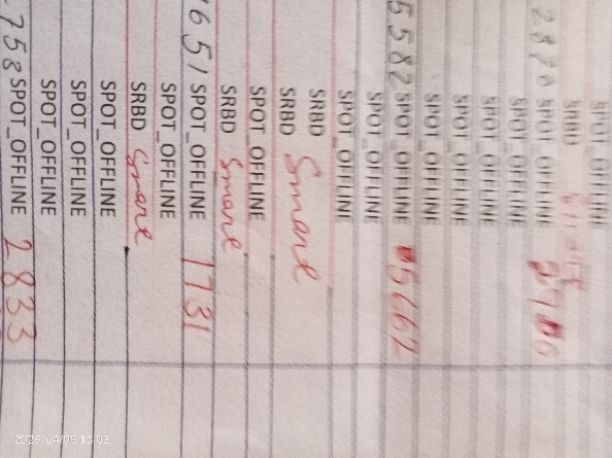 SPOT_OFFLINE
SRBD
SPOT_OFFLINE
SPOT_OFFLINE
SPOT_OFFLINE
SPOT_OFFLINE
SPOT_OFFLINE
5582 SPOT_OFFLINE 5662
SPOT_OFFLINE
SPOT_OFFLINE
SRBD
SRBD Smare
SPOT_OFFLINE
SRBD Smare
1651 SPOT_OFFLINE 1731
SPOT_OFFLINE
SRBD Smare
SPOT_OFFLINE
SPOT_OFFLINE
SPOT_OFFLINE
2758 SPOT_OFFLINE 2833